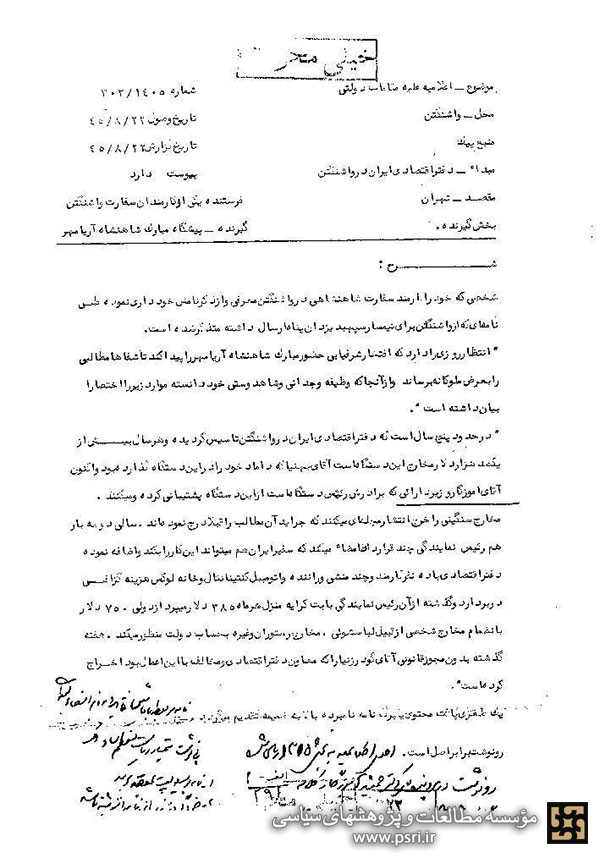 خیلی محر
موضوع ــ اعلامیه علیه مقامات دولتی
شماره ۳۰۲/۱۴۰۵
محل ــ واشنگتن
تاریخ وصول ۴۵/۸/۲۲
منبع پیک
تاریخ گزارش ۴۵/۸/۲۳
مبداء ــ دفتر اقتصادی ایران در واشنگتن
پیوست دارد
مقصد ــ تهران
فرستنده یکی از کارمندان سفارت واشنگتن
بخش گیرنده .
گیرنده ــ پیشگاه مبارک شاهنشاه آریامهر
شــــــرح :
شخصی که خود را کارمند سفارت شاهنشاهی در واشنگتن معرفی و از ذکر نامش خود داری نموده طی
نامه‌ای که از واشنگتن برای تیمسار سپهبد یزدان پناه ارسال داشته متذکر شده است .
" انتظار روزی را دارد که افتخار شرفیابی حضور مبارک شاهنشاه آریامهر را پیدا کند تا شفاها مطالبی
را بعرض ملوکانه برساند و از آنجا که وظیفه وجدانی و شاهدوستی خود دانسته موارد زیر را اختصارا
بیان داشته است " .
" در حدود پنج سال است که دفتر اقتصادی ایران در واشنگتن تاسیس گردیده و هر سال بیــش از
یکصد هزار دلار مخارج این دستگاه است آقای بهنیا که داماد خود را در این دستگاه گذارده بود و اکنون
آقای آموزگار و زیر دارائی که برادرش رئیس دستگاه است از این دستگاه پشتیبانی کرده و میکنند .
مخارج سنگینی را خرج انتشار مجله‌ای میکنند که جراید آن مطالب را قبلا درج نموده‌اند . سالی دو سه بار
هم رئیس نمایندگی چند قرارداد امضاء میکند که سفیر ایران هم میتواند این کار را بکند و اضافه نموده
دفتر اقتصادی با ده نفر کارمند و چند منشی و راننده و اتومبیل کنتیننتال و خانه لوکس هزینه گزافــی
در بردارد و گذشته از آن رئیس نمایندگی بابت کرایه منزل هر ماه ۳۸۵ دلار میبرد از دولتی . ۷۵۰ دلار
با انضمام مخارج شخصی از قبیل لباسشوئی . مخارج رستوران و غیره به حساب دولت منظور میکند . هفته
گذشته بدون مجوز قانونی آقای گودرزنیا را که معاون دفتر اقتصادی و مخالف با این اعمال بود اخراج
کرده است " .
یک طغری پاکت محتوی نامه نامبرده بالا به ضمیمه تقدیم میگردد
رونوشت برابر اصل است .
مؤسسه مطالعات و پژوهشهای سیاسی
www.psri.ir